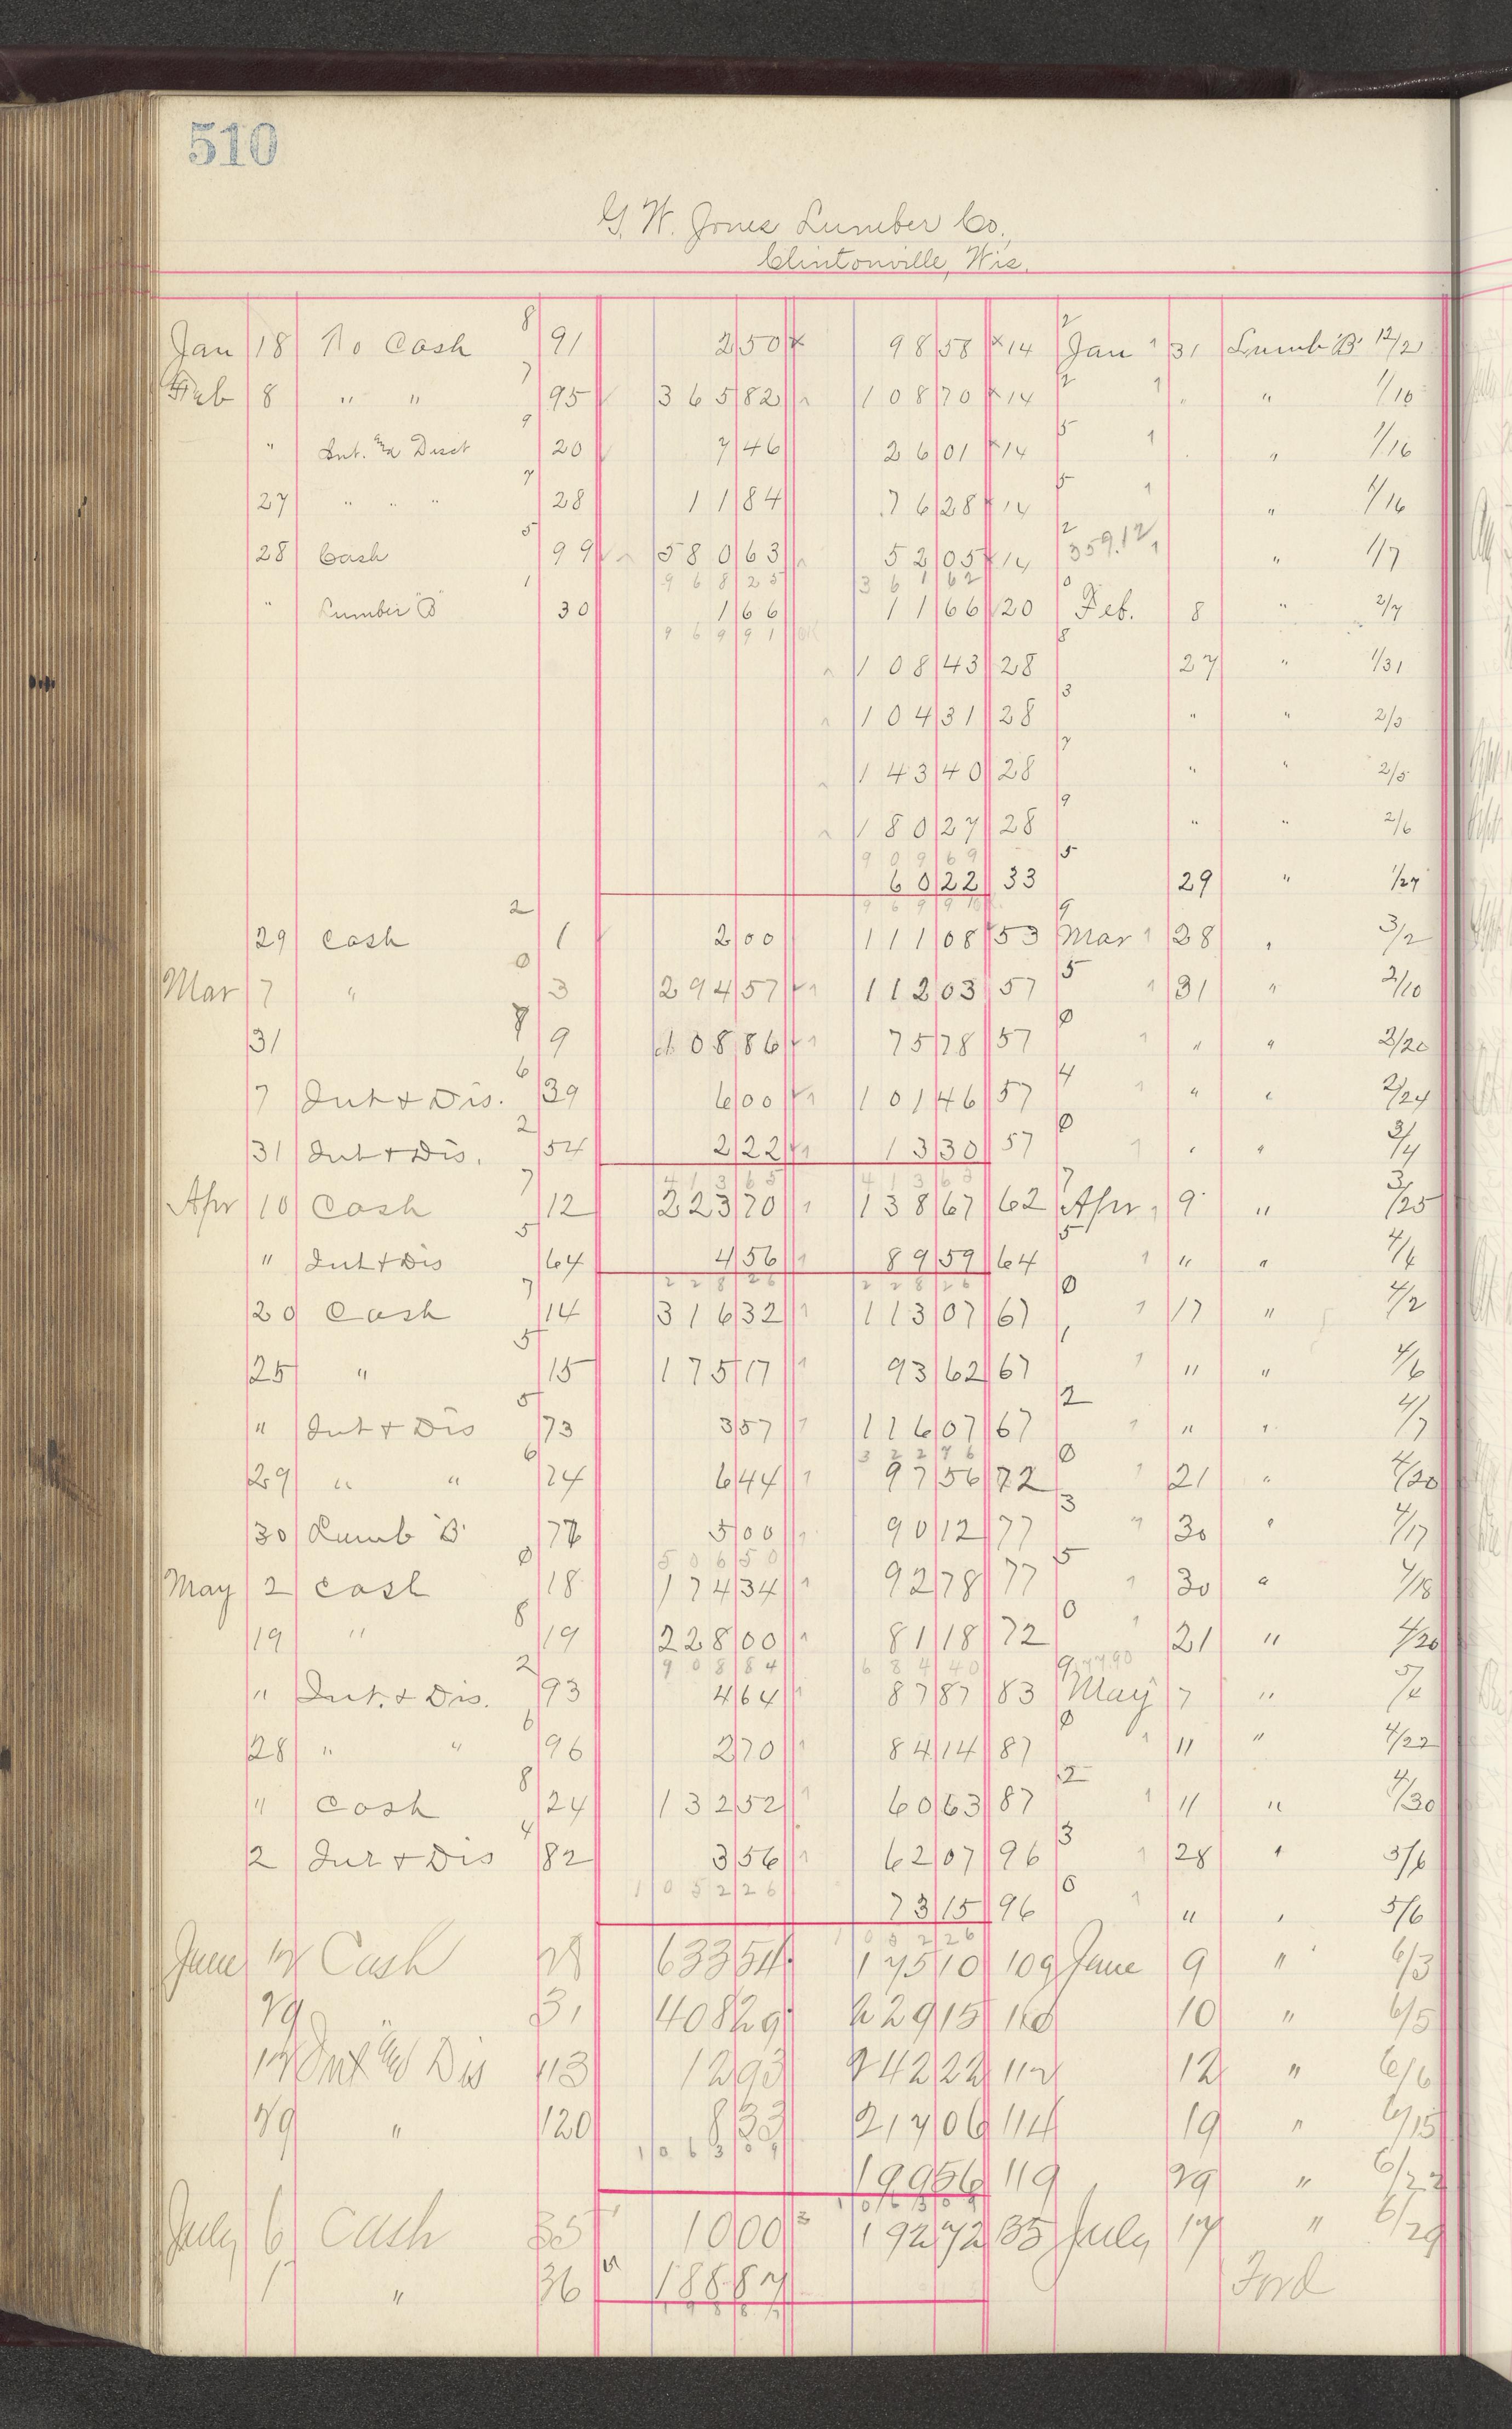 510
G. W. Jones Lumber Co.,
Clintonville, Wis.
Jan 18 To Cash 8 91 2 50 x 98 58 x 14 2 Jan 1 31 Lumb "B" 12/21
Feb 8 " " 7 95 365 82 108 70 x 14 2 1 " 1/10
" Int. and Disct 9 20 7 46 26 01 x 14 5 1 " 1/16
27 " " " 7 28 11 84 76 28 x 14 5 1 " 1/16
28 Cash 5 99 580 63 52 05 x 14 2 359.12 1 " 1/7
968 25 361 62
" Lumber "B" 1 30 1 66 11 66 20 0 Feb. 8 " 2/7
969 91 OK
108 43 28 8 27 " 1/31
104 31 28 3 " " 2/3
143 40 28 7 " " 2/5
180 27 28 9 " " 2/6
909 69
60 22 33 5 29 " 1/27
969 91
29 Cash 2 1 2 00 111 08 53 9 Mar 1 28 " 3/2
Mar 7 " 0 3 294 57 112 03 57 5 1 31 " 2/10
31 9 108 86 75 78 57 0 1 " " 2/20
7 Int & Dis. 6 39 6 00 101 46 57 4 1 " " 2/24
31 Int & Dis. 2 54 2 22 13 30 57 0 1 " " 3/4
413 65 413 65
Apr 10 Cash 7 12 223 70 138 67 62 7 Apr 1 9 " 3/25
" Int & Dis 5 64 4 56 89 59 64 5 1 " " 4/6
228 26 228 26
20 Cash 7 14 316 32 113 07 67 0 1 17 " 4/2
25 " 5 15 175 17 93 62 67 1 1 " " 4/6
" Int & Dis 5 73 3 57 116 07 67 2 1 " " 4/7
322 76
29 " " 6 74 6 44 97 56 72 0 1 21 " 4/20
30 Lumb "B" 77 5 00 90 12 77 3 1 30 " 4/17
506 50
May 2 Cash 0 18 174 34 92 78 77 5 1 30 " 4/18
19 " 8 19 228 00 81 18 72 0 1 21 " 4/20
908 84 684 40
" Int. & Dis. 2 93 4 64 87 87 83 9 May 7 " 5/2
28 " " 6 96 2 70 84 14 87 0 1 11 " 4/22
" Cash 8 24 132 52 60 63 87 2 1 11 " 4/30
2 Int & Dis 4 82 3 56 62 07 96 3 1 28 " 5/6
1052 26
73 15 96 6 1 " " 5/6
1052 26
June 12 Cash 28 633 54 175 10 109 June 9 " 6/3
29 " 31 408 29 229 15 110 10 " 6/5
12 Int and Dis 113 12 93 242 22 112 12 " 6/6
29 " 120 8 33 217 06 114 19 " 6/15
1063 09
199 56 119 29 " 6/22
1063 09
July 6 Cash 35 10 00 3 192 72 135 July 17 " 6/29
" 36 5 188 87 Ford
198 87